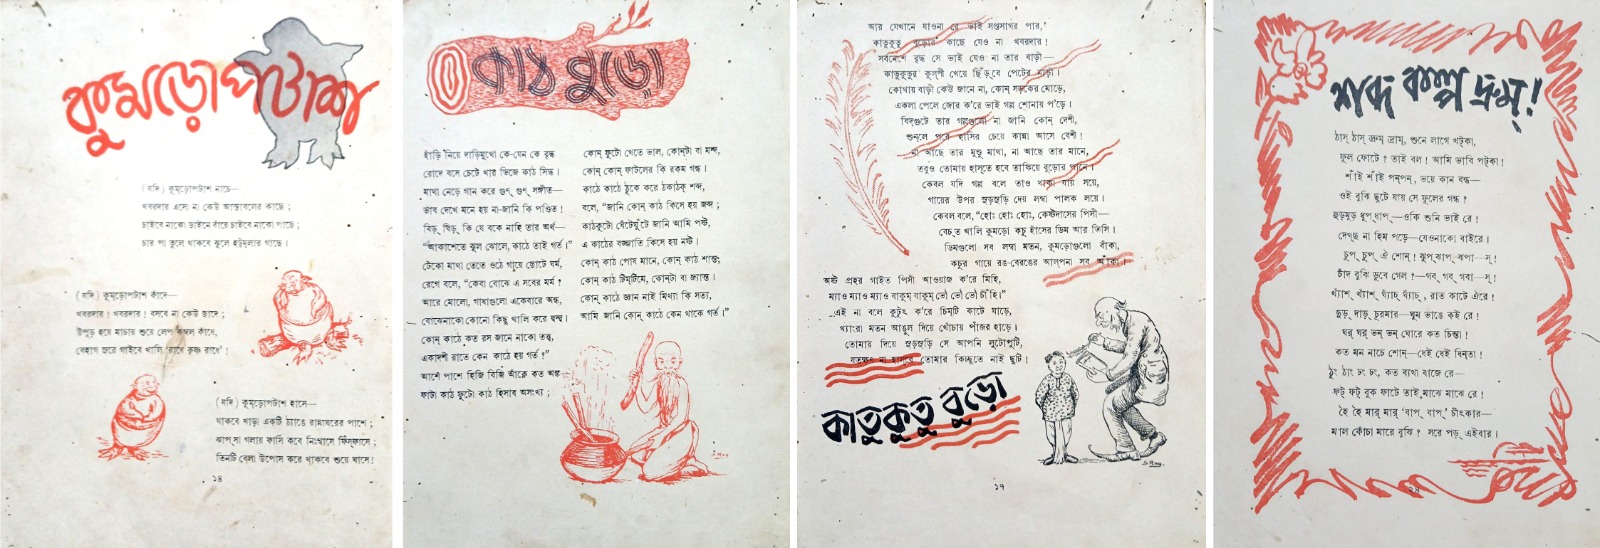 কুমড়োপটাশ
(যদি) কুম্‌ড়োপটাশ নাচে—
খবরদার এসো না কেউ আস্তাবলের কাছে ;
চাইবে নাকো ডাইনে বাঁয়ে চাইবে নাকো পাছে ;
চার পা তুলে থাকবে ঝুলে হট্টমুলার গাছে।
(যদি) কুম্‌ড়োপটাশ কাঁদে—
খবরদার! খবরদার! বসবে না কেউ ছাদে ;
উপুড় হয়ে মাচায় শুয়ে লেপ কম্বল কাঁধে,
বেহাগ সুরে গাইবে খালি 'রাধে কৃষ্ণ রাধে'!
(যদি) কুম্‌ড়োপটাশ হাসে—
থাকবে খাড়া একটি ঠ্যাঙে রান্নাঘরের পাশে ;
ঝাপ্‌সা গলায় ফার্সি কবে নিঃশ্বাসে ফিস্‌ফাসে ;
তিনটি বেলা উপোস করে থাকবে শুয়ে ঘাসে!
১৪
কাঠ বুড়ো
হাঁড়ি নিয়ে দাড়িমুখো কে-যেন কে বৃদ্ধ
রোদে বসে চেটে খায় ভিজে কাঠ সিদ্ধ।
মাথা নেড়ে গান করে গুন্‌ গুন্‌ সঙ্গীত—
ভাব দেখে মনে হয় না-জানি কি পণ্ডিত!
বিড়্‌ বিড়্‌ কি যে বকে নাহি তার অর্থ—
"আকাশেতে ঝুল ঝোলে, কাঠে তাই গর্ত।"
টেকো মাথা তেতে ওঠে গায়ে ছোটে ঘর্ম,
রেগে বলে, "কেবা বোঝে এ সবের মর্ম?
আরে মোলো, গাধাগুলো একেবারে অন্ধ,
বোঝেনাকো কোনো কিছু খালি করে দ্বন্দ্ব।
কোন্‌ কাঠে কত রস জানে নাকো তত্ত্ব,
একাদশী রাতে কেন কাঠে হয় গর্ত?"
আশে পাশে হিজি বিজি আঁকে কত অঙ্ক
ফাটা কাঠ ফুটো কাঠ হিসাব অসংখ্য ;
কোন্‌ ফুটো খেতে ভাল, কোন্‌টা বা মন্দ,
কোন্‌ কোন্‌ ফাটলের কি রকম গন্ধ।
কাঠে কাঠে ঠুকে করে ঠকাঠক শব্দ,
বলে, "জানি কোন্‌ কাঠ কিসে হয় জব্দ ;
কাঠকুটো ঘেঁটেঘুঁটে জানি আমি পষ্ট,
এ কাঠের বজ্জাতি কিসে হয় নষ্ট।
কোন্‌ কাঠ পোষ মানে, কোন্‌ কাঠ শান্ত,
কোন্‌ কাঠ টিম্‌টিমে, কোন্‌টা বা জ্যান্ত।
কোন্‌ কাঠে জ্ঞান নাই মিথ্যা কি সত্য,
আমি জানি কোন্‌ কাঠে কেন থাকে গর্ত।"
S. Ray
আর যেখানে যাওনা রে ভাই সপ্তসাগর পার,
কাতুকুতু বুড়োর কাছে যেও না খবরদার!
সর্বনেশে বৃদ্ধ সে ভাই যেও না তার বাড়ী—
কাতুকুতুর কুল্‌পী খেয়ে ছিঁড়্‌বে পেটের নাড়ী।
কোথায় বাড়ী কেউ জানে না, কোন্‌ সড়কের মোড়ে,
একলা পেলে জোর ক'রে ভাই গল্প শোনায় প'ড়ে।
বিদ্‌ঘুটে তার গল্পগুলো না জানি কোন্‌ দেশী,
শুন্‌লে পরে হাসির চেয়ে কান্না আসে বেশী!
না আছে তার মুণ্ডু মাথা, না আছে তার মানে,
তবুও তোমায় হাস্‌তে হবে তাকিয়ে বুড়োর পানে।
কেবল যদি গল্প বলে তাও থাকা যায় সয়ে,
গায়ের উপর সুড়সুড়ি দেয় লম্বা পালক লয়ে।
কেবল বলে, "হোঃ হোঃ হোঃ, কেষ্টদাসের পিসী—
বেচ্‌ত খালি কুমড়ো কচু হাঁসের ডিম আর তিসি।
ডিমগুলো সব লম্বা মতন, কুমড়োগুলো বাঁকা,
কচুর গায়ে রঙ-বেরঙের আল্‌পনা সব আঁকা।
অষ্ট প্রহর গাইত পিসী আওয়াজ ক'রে মিহি,
ম্যাও ম্যাও ম্যাও বাকুম্‌ বাকুম্‌ ভৌ ভৌ ভৌ চীঁহি।"
এই না বলে কুটুৎ ক'রে চিম্‌টি কাটে ঘাড়ে,
খ্যাংরা মতন আঙুল দিয়ে খোঁচায় পাঁজর হাড়ে।
তোমায় দিয়ে সুড়সুড়ি সে আপনি লুটোপুটি,
যতক্ষণ না হাসবে তোমার কিচ্ছুতে নাই ছুটি!
কাতুকুতু বুড়ো
S. Ray.
১৭
শব্দ কল্প দ্রুম্‌!
ঠাস্‌ ঠাস্‌ দ্রুম্‌ দ্রাম্‌, শুনে লাগে খট্‌কা,
ফুল ফোটে? তাই বল! আমি ভাবি পট্‌কা!
শাঁই শাঁই পন্‌পন্‌, ভয়ে কান বন্ধ—
ওই বুঝি ছুটে যায় সে ফুলের গন্ধ?
হুড়মুড় ধুপ্‌ধাপ্‌—ওকি শুনি ভাই রে!
দেখ্‌ছ না হিম পড়ে—যেওনাকো বাইরে।
চুপ্‌ চুপ্‌ ঐ শোন্‌! ঝুপ্‌ঝাপ্‌ ঝপা—স্‌!
চাঁদ বুঝি ডুবে গেল?—গব্‌ গব্‌ গবা—স্‌!
খ্যাঁশ্‌ খ্যাঁশ্‌ ঘ্যাঁচ্‌ ঘ্যাঁচ্‌, রাত কাটে ঐরে!
দুড়্‌ দাড়্‌ চুরমার—ঘুম ভাঙে কই রে!
ঘর্‌ ঘর্‌ ভন্‌ ভন্‌ ঘোরে কত চিন্তা!
কত মন নাচে শোন্‌—ধেই ধেই ধিন্‌তা!
ঠুং ঠাং ঢং ঢং, কত ব্যথা বাজে রে—
ফট্‌ ফট্‌ বুক ফাটে তাই মাঝে মাঝে রে!
হৈ হৈ মার্‌ মার্‌ 'বাপ্‌ বাপ্‌' চীৎকার—
মালকোঁচা মারে বুঝি? সরে পড়্‌ এইবার।